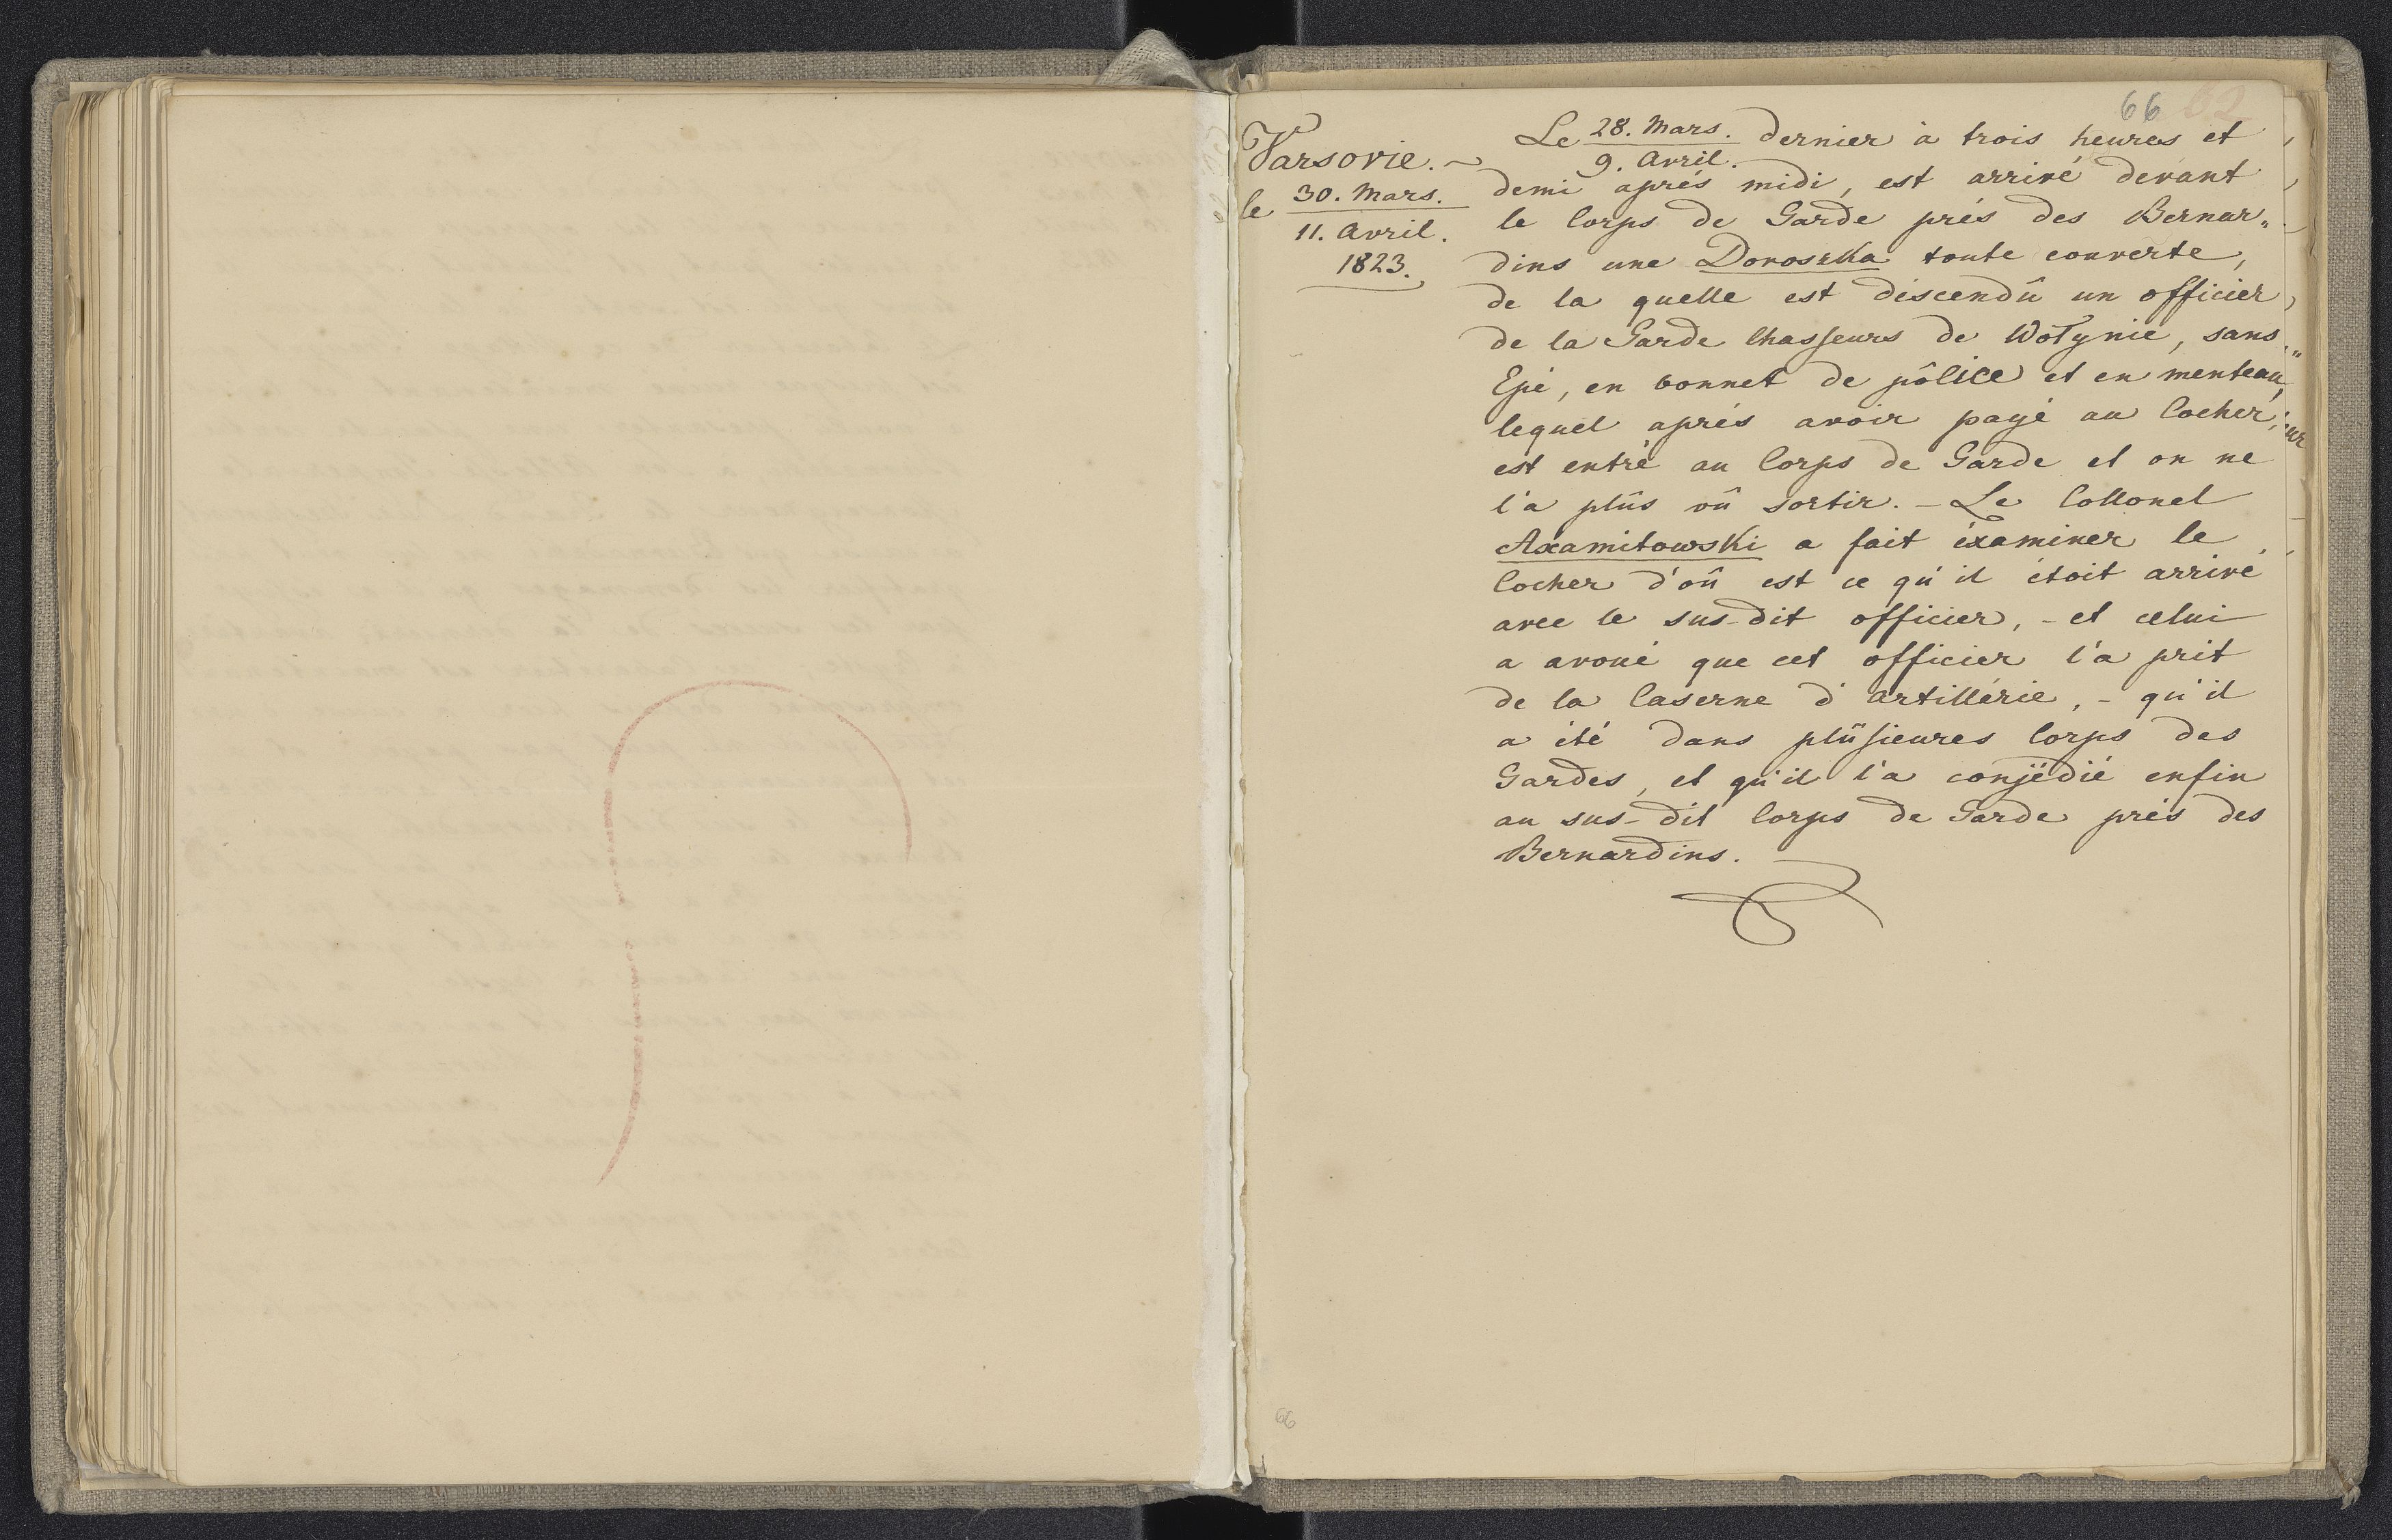 66 62
Varsovie. ~
le 30. Mars.
11. Avril.
1823.
Le 28. Mars. dernier à trois heures et
9. Avril.
demi aprés midi, est arrivé devant
le Corps de Garde prés des Bernar„
dins une Doroszka toute couverte,
de la quelle est déscendû un officier
de la Garde Chasseurs de Wołynie, sans
Epé, en bonnet de pôlice et en menteau,
lequel aprés avoir payé au Cocher,
est entré au Corps de Garde et on ne
l'a plûs vû sortir. – Le Collonel
Axamitowski a fait éxaminer le
Cocher d'oû est ce qu'il étoit arrivé
avec le sus-dit officier, – et celui
a avoué que cet officier l'a prit
de la Caserne d'artillérie, – qu'il
a été dans plûsieures Corps des
Gardes, et qu'il l'a conjédié enfin
au sus-dit Corps de Garde prés des
Bernardins.
66